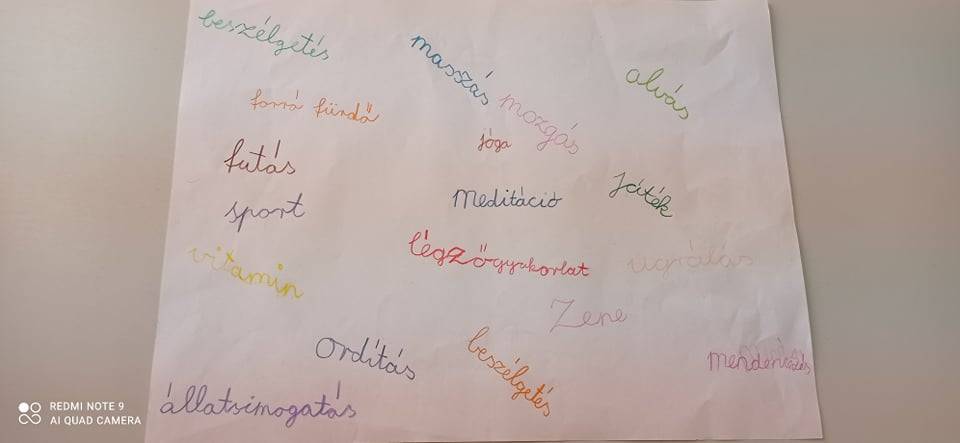 beszélgetés
masszás
alvás
forró fürdő
mozgás
jóga
futás
játék
sport
Meditáció
légzőgyakorlat
ugrálás
vitamin
Zene
ordítás
beszélgetés
állatsimogatás
REDMI NOTE 9
AI QUAD CAMERA